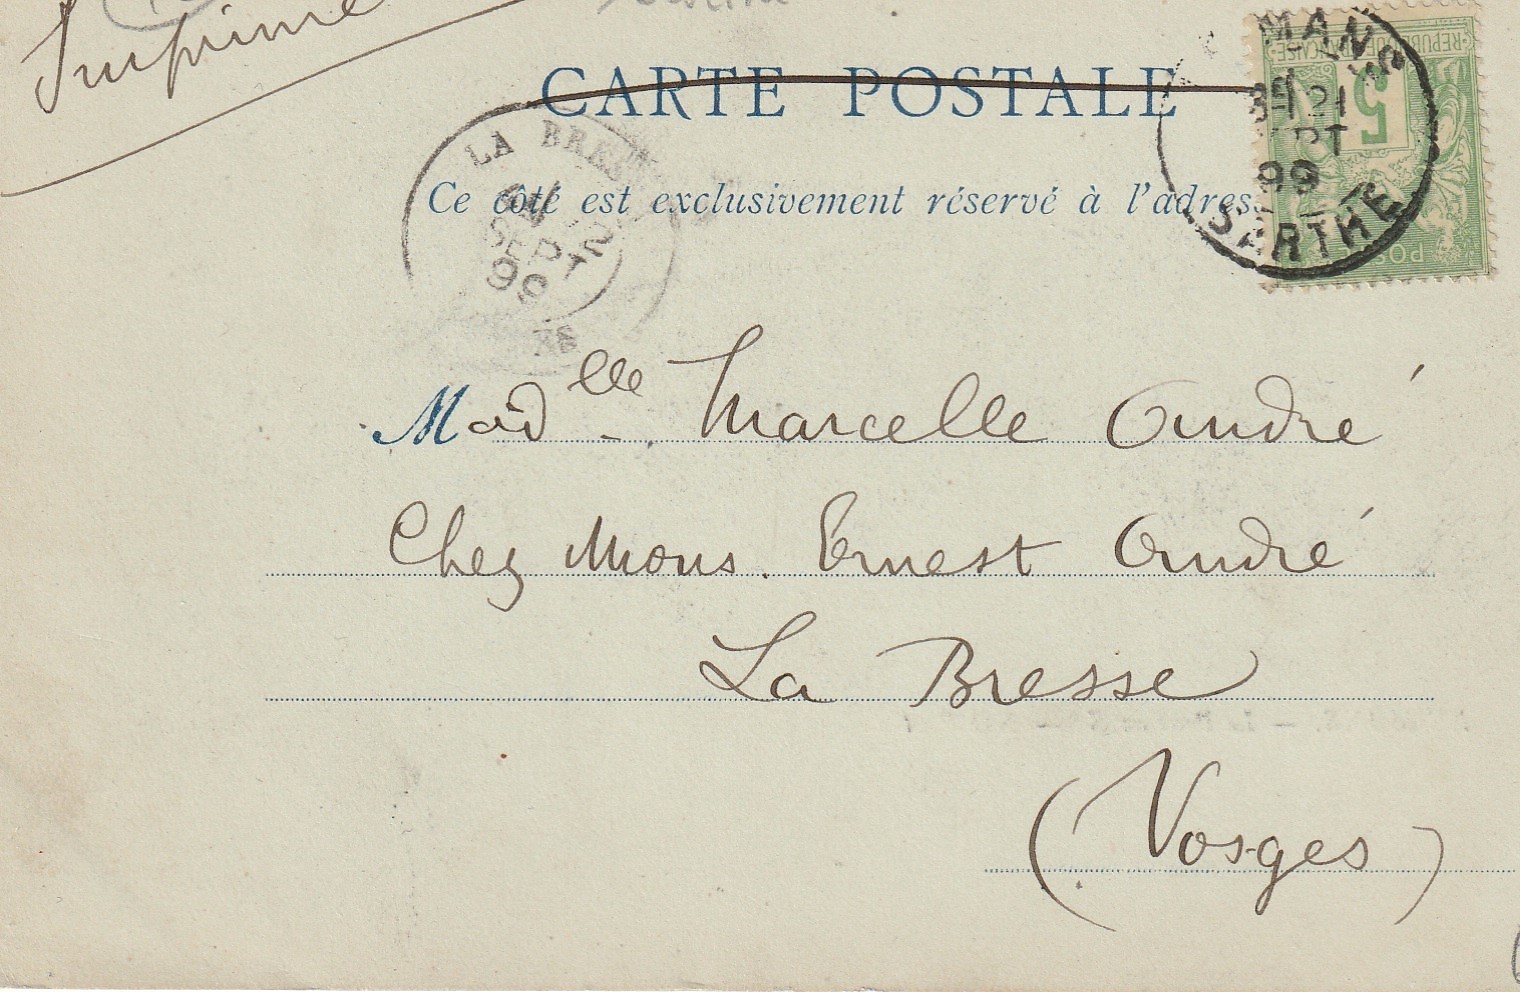 Imprimé
CARTE POSTALE
Ce côté est exclusivement réservé à l'adress
LA BRES
12
SEPT
99
MANS
21
PT
99
SARTHE
REPUBLIQUE FRANCAISE
5
POS
Mad lle Marcelle André
Chez Mons. Ernest André
La Bresse
(Vosges)